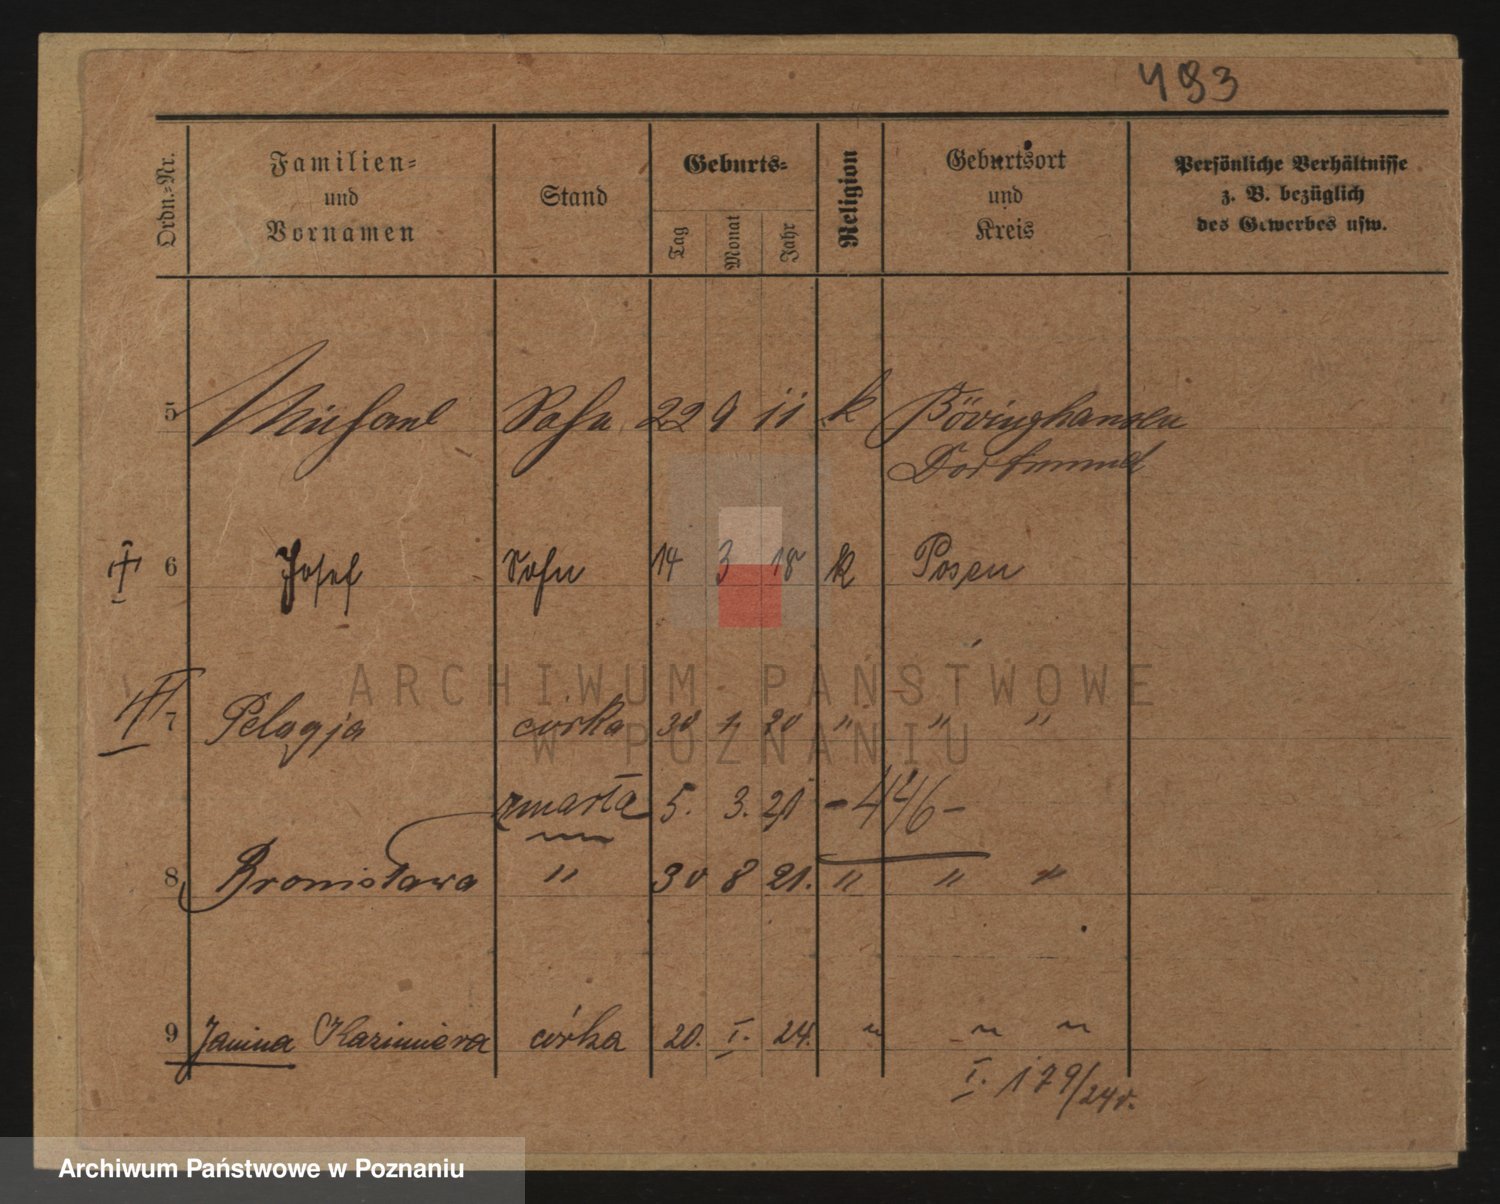 493
Ordn.=Nr. Familien= und Vornamen Stand Geburts= Tag Monat Jahr Religion Geburtsort und Kreis Persönliche Verhältnisse z. B. bezüglich des Gewerbes usw.
5 Michael Sohn 22 9 11 k Bövinghausen
Dortmund
6 Josef Sohn 14 3 18 k Posen
ARCHIWUM PAŃSTWOWE
W POZNANIU
7 Pelagja córka 20 " " "
zmarła 5. 3. 21 - 446 -
8 Bronisława " 30 8 21. " " "
9 Janina Kazimiera córka 20. I. 24. " " "
I. 179/24r.
Archiwum Państwowe w Poznaniu